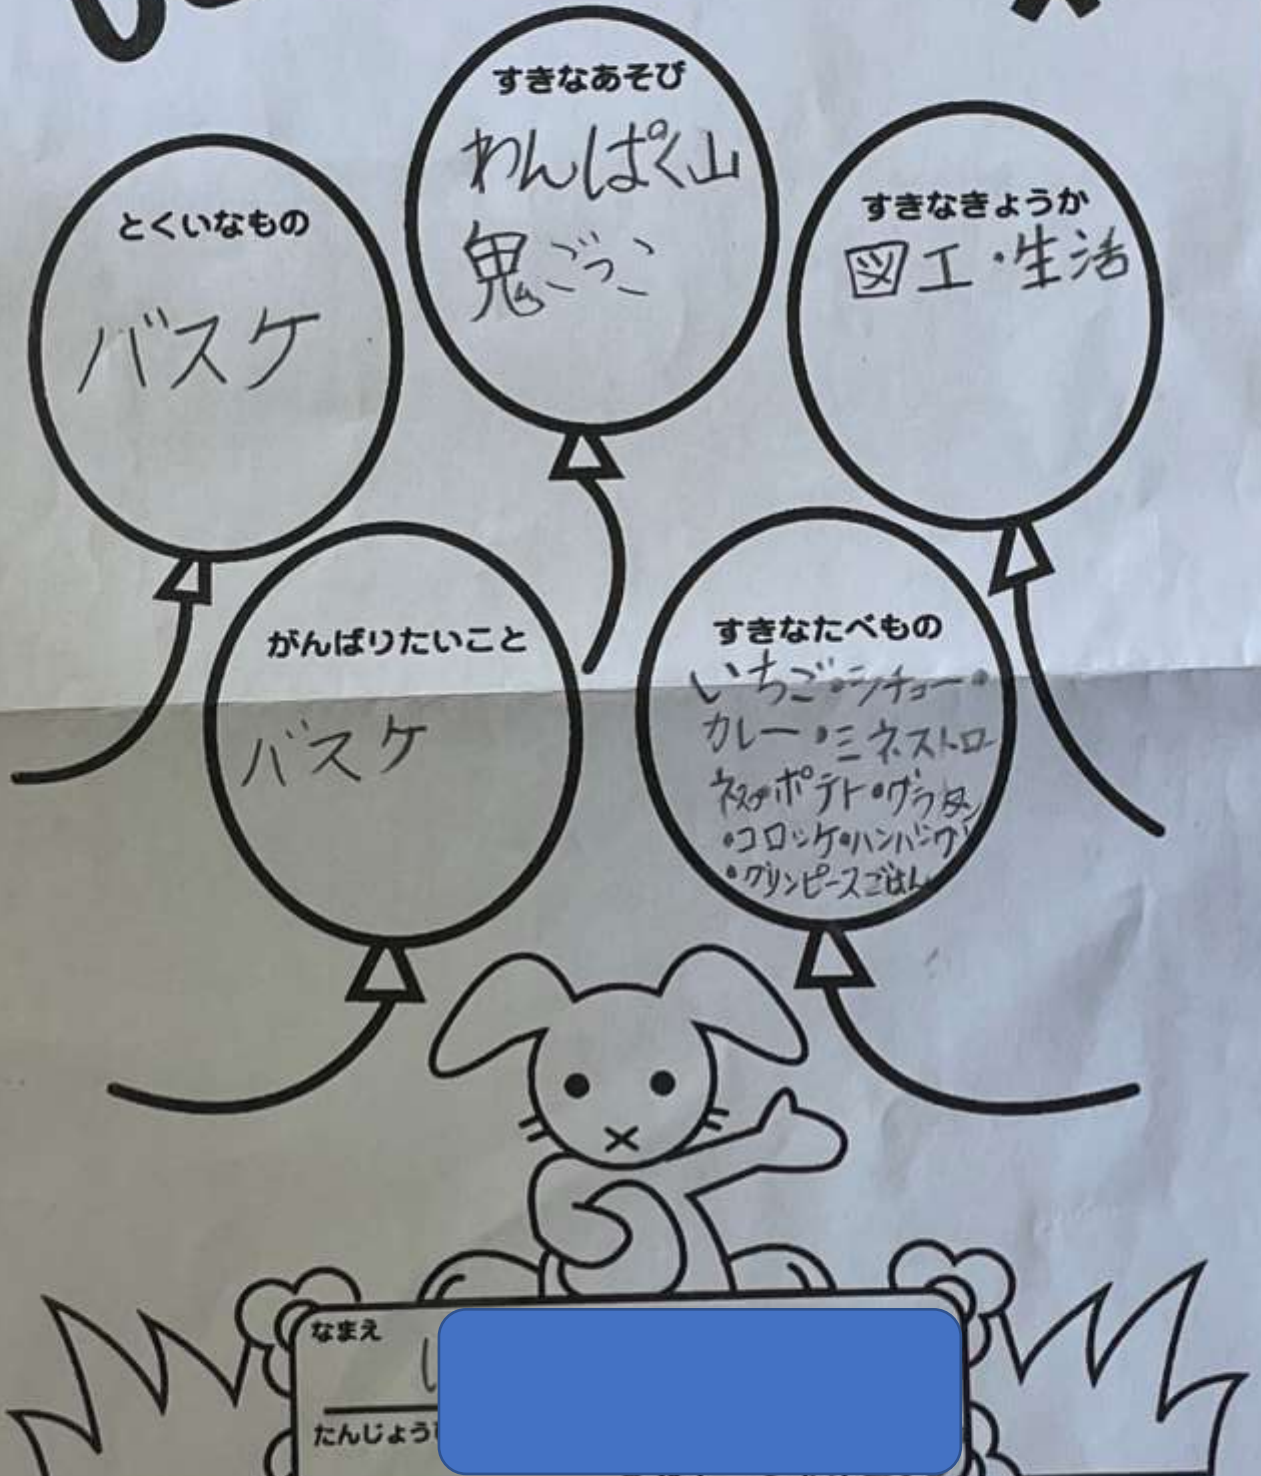 すきなあそび
わんぱく山
鬼ごっこ
とくいなもの
バスケ
すきなきょうか
図工・生活
がんばりたいこと
バスケ
すきなたべもの
いちご・シチュー・
カレー・ミネストロー
ネ・ポテト・グラタン
・コロッケ・ハンバーグ
・グリンピースごはん
なまえ
たんじょうび